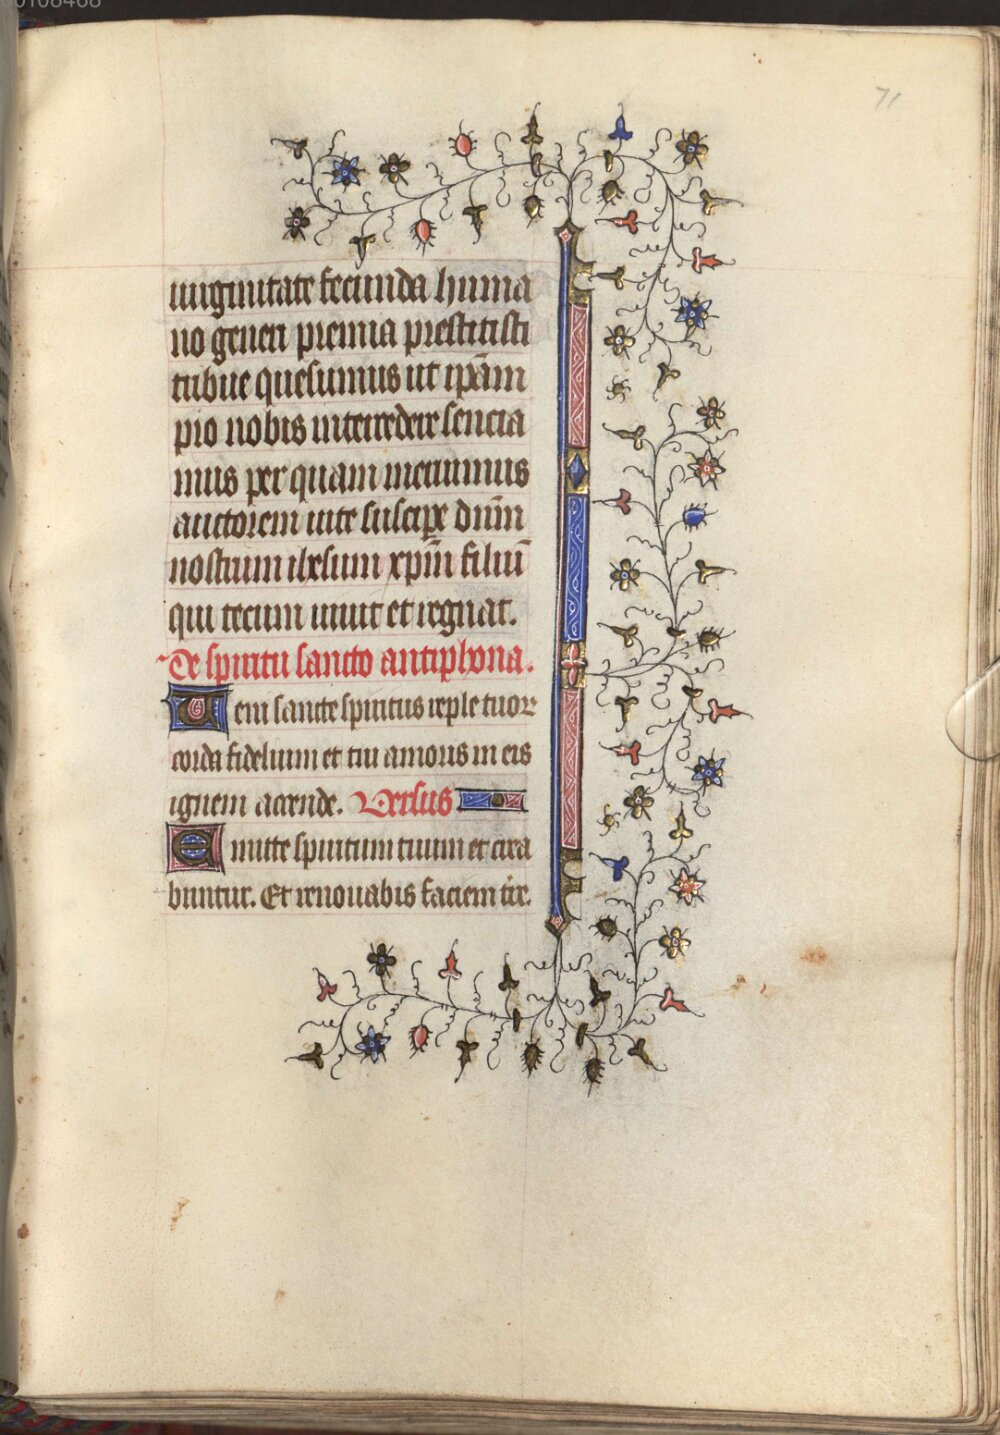 00108468
71
uirginitate fecunda huma
no generi premia prestitisti
tribue quesumus ut ip̄am
pro nobis intercedere sencia
mus per quam meruimus
auctorem uite suscipe dn̄m
nostrum ih̄esum xp̄m filiū
qui tecum uiuit et regnat.
De spiritu sancto antiphona.
Ueni sancte spiritus reple tuoꝝ
corda fidelium et tui amoris in eis
ignem accende. Versus
Emitte spiritum tuum et crea
buntur. Et renouabis faciem tr̄e.